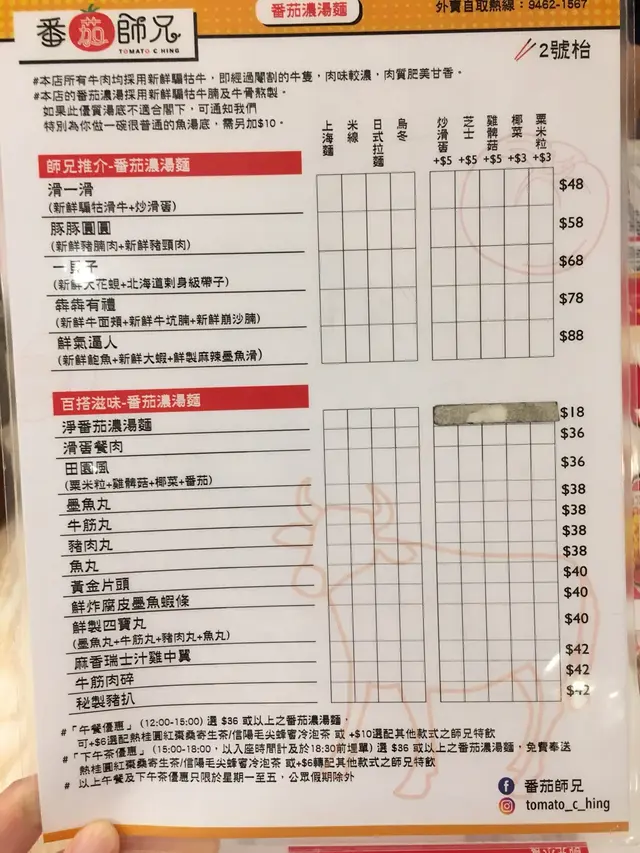 番茄師兄
TOMATO C HING
番茄濃湯麵
外賣自取熱線：9462-1567
2號枱
#本店所有牛肉均採用新鮮騸牯牛，即經過閹割的牛隻，肉味較濃，肉質肥美甘香。
#本店的番茄濃湯採用新鮮騸牯牛腩及牛骨熬製。
如果此優質湯底不適合閣下，可通知我們
特別為你做一碗很普通的魚湯底，需另加$10。
上海麵
米線
日式拉麵
烏冬
炒滑蛋 +$5
芝士 +$5
雞髀菇 +$5
椰菜 +$3
粟米粒 +$3
師兄推介-番茄濃湯麵
滑一滑 $48
(新鮮騸牯滑牛+炒滑蛋)
豚豚圓圓 $58
(新鮮豬腩肉+新鮮豬頸肉)
一男子 $68
(新鮮大花蜆+北海道刺身級帶子)
犇犇有禮 $78
(新鮮牛面頰+新鮮牛坑腩+新鮮崩沙腩)
鮮氣逼人 $88
(新鮮鮑魚+新鮮大蝦+鮮製麻辣墨魚滑)
百搭滋味-番茄濃湯麵
淨番茄濃湯麵 $18
滑蛋餐肉 $36
田園風 $36
(粟米粒+雞髀菇+椰菜+番茄)
墨魚丸 $38
牛筋丸 $38
豬肉丸 $38
魚丸 $38
黃金片頭 $40
鮮炸腐皮墨魚蝦條 $40
鮮製四寶丸 $40
(墨魚丸+牛筋丸+豬肉丸+魚丸)
麻香瑞士汁雞中翼 $42
牛筋肉碎 $42
秘製豬扒 $42
#「午餐優惠」(12:00-15:00) 選 $36 或以上之番茄濃湯麵，
可+$6選配熱桂圓紅棗桑寄生茶/信陽毛尖蜂蜜冷泡茶 或 +$10選配其他款式之師兄特飲
#「下午茶優惠」(15:00-18:00，以入座時間計及於18:30前埋單) 選 $36 或以上之番茄濃湯麵，免費奉送
熱桂圓紅棗桑寄生茶/信陽毛尖蜂蜜冷泡茶 或+$6轉配其他款式之師兄特飲
# 以上午餐及下午茶優惠只限於星期一至五，公眾假期除外
番茄師兄
tomato_c_hing